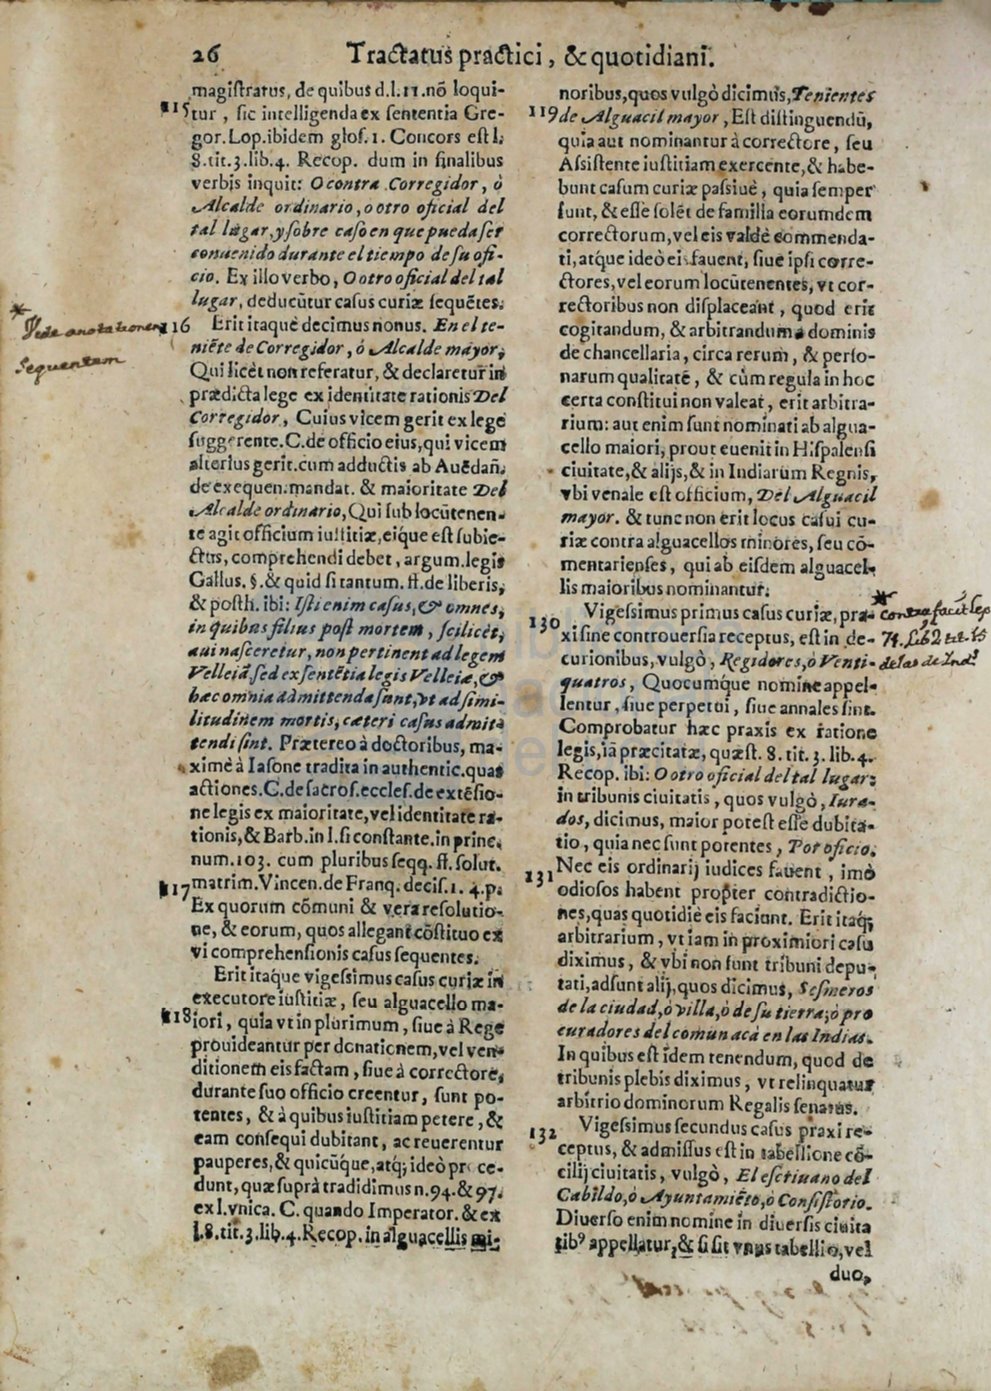 26 Tractatus practici, & quotidiani.
magistratus, de quibus d.l.11.nō loqui-
115 tur, sic intelligenda ex sententia Gre-
gor. Lop. ibidem glos. 1. Concors est l.
8. tit. 3. lib. 4. Recop. dum in finalibus
verbis inquit: O contra Corregidor, ò
Alcalde ordinario, o otro oficial del
tal lugar, y sobre caso en que pueda ser
conuenido durante el tiempo de su ofi-
cio. Ex illo verbo, O otro oficial del tal
lugar, deducūtur casus curiæ sequētes.
116 Erit itaquè decimus nonus. En el te-
niēte de Corregidor, ó Alcalde mayor,
Qui licèt non referatur, & declaretur in
prædicta lege ex identitate rationis Del
Corregidor, Cuius vicem gerit ex lege
suggerente. C. de officio eius, qui vicem
alterius gerit. cum adductis ab Auēdañ.
de exequen. mandat. & maioritate Del
Alcalde ordinario, Qui sub locūtenen-
te agit officium iustitiæ, eiq́ue est subie-
ctus, comprehendi debet, argum. legis
Gallus. §. & quid si tantum. ff. de liberis,
& posth. ibi: Isti enim casus, & omnes,
in quibus filius post mortem, scilicèt,
aui nasceretur, non pertinent ad legem
Velleiā, sed ex sentētia legis Velleiæ, &
hæc omnia admittenda sunt, vt ad simi-
litudinem mortis, cæteri casus admit-
tendi sint. Prætereo à doctoribus, ma-
ximè à Iasone tradita in authentic. quas
actiones. C. de sacros. eccles. de extēsio-
ne legis ex maioritate, vel identitate ra-
tionis, & Barb. in l. si constante. in princ.
num. 103. cum pluribus seqq. ff. solut.
117 matrim. Vincen. de Franq. decis. 1. 4. p.
Ex quorum cōmuni & vera resolutio-
ne, & eorum, quos allegant cōstituo ex
vi comprehensionis casus sequentes.
Erit itaq́ue vigessimus casus curiæ in
executore iustitiæ, seu alguacello ma-
118 iori, quia vt in plurimum, siue à Rege
prouideantur per donationem, vel ven-
ditionem eis factam, siue à correctore,
durante suo officio creentur, sunt po-
tentes, & à quibus iustitiam petere, &
eam consequi dubitant, ac reuerentur
pauperes, & quicūq́ue, atq́; ideò prece-
dunt, quæ suprà tradidimus n. 94. & 97.
ex l. vnica. C. quando Imperator. & ex
l. 8. tit. 3. lib. 4. Recop. in alguacellis mi-
noribus, quos vulgò dicimus, Tenientes
119 de Alguacil mayor, Est distinguendū,
quia aut nominantur à correctore, seu
Assistente iustitiam exercente, & habe-
bunt casum curiæ passiuè, quia semper
sunt, & esse solēt de familia eorumdem
correctorum, vel eis valdè commenda-
ti, atque ideò eis fauent, siue ipsi corre-
ctores, vel eorum locūtenentes, vt cor-
rectoribus non displaceant, quod erit
cogitandum, & arbitrandum a dominis
de chancellaria, circa rerum, & perso-
narum qualitatē, & cùm regula in hoc
certa constitui non valeat, erit arbitra-
rium: aut enim sunt nominati ab algua-
cello maiori, prout euenit in Hispalensi
ciuitate, & alijs, & in Indiarum Regnis,
vbi venale est officium, Del Alguacil
mayor. & tunc non erit locus casui cu-
riæ contra alguacellos minores, seu cō-
mentarienses, qui ab eisdem alguacel-
lis maioribus nominantur.
130 Vigessimus primus casus curiæ, pra-
xi sine controuersia receptus, est in de-
curionibus, vulgò, Regidores, ò Venti-
quatros, Quocumq́ue nomine appel-
lentur, siue perpetui, siue annales sint.
Comprobatur hæc praxis ex ratione
legis, iā præcitatæ, quæst. 8. tit. 3. lib. 4.
Recop. ibi: O otro oficial del tal lugar:
in tribunis ciuitatis, quos vulgò, Iura-
dos, dicimus, maior potest esse dubita-
tio, quia nec sunt potentes, Por oficio.
131 Nec eis ordinarij iudices fauent, imò
odiosos habent propter contradictio-
nes, quas quotidiè eis faciunt. Erit itaq́;
arbitrarium, vt iam in proximiori casu
diximus, & vbi non sunt tribuni depu-
tati, adsunt alij, quos dicimus, Sesmeros
de la ciudad, ò villa, ò de su tierra, ò pro
curadores del comun acà en las Indias.
In quibus est idem tenendum, quod de
tribunis plebis diximus, vt relinquatur
arbitrio dominorum Regalis senatus.
132 Vigessimus secundus casus praxi re-
ceptus, & admissus est in tabellione cō-
cilij ciuitatis, vulgò, El escriuano del
Cabildo, ò Ayuntamiēto, ò Consistorio.
Diuerso enim nomine in diuersis ciuita
tibꝰ appellatur, & si sit vnus tabellio, vel
duo,
Vide anotationem
sequentem
contra facit lex
71. lib. 2 tit. 15
de las de Ind.s